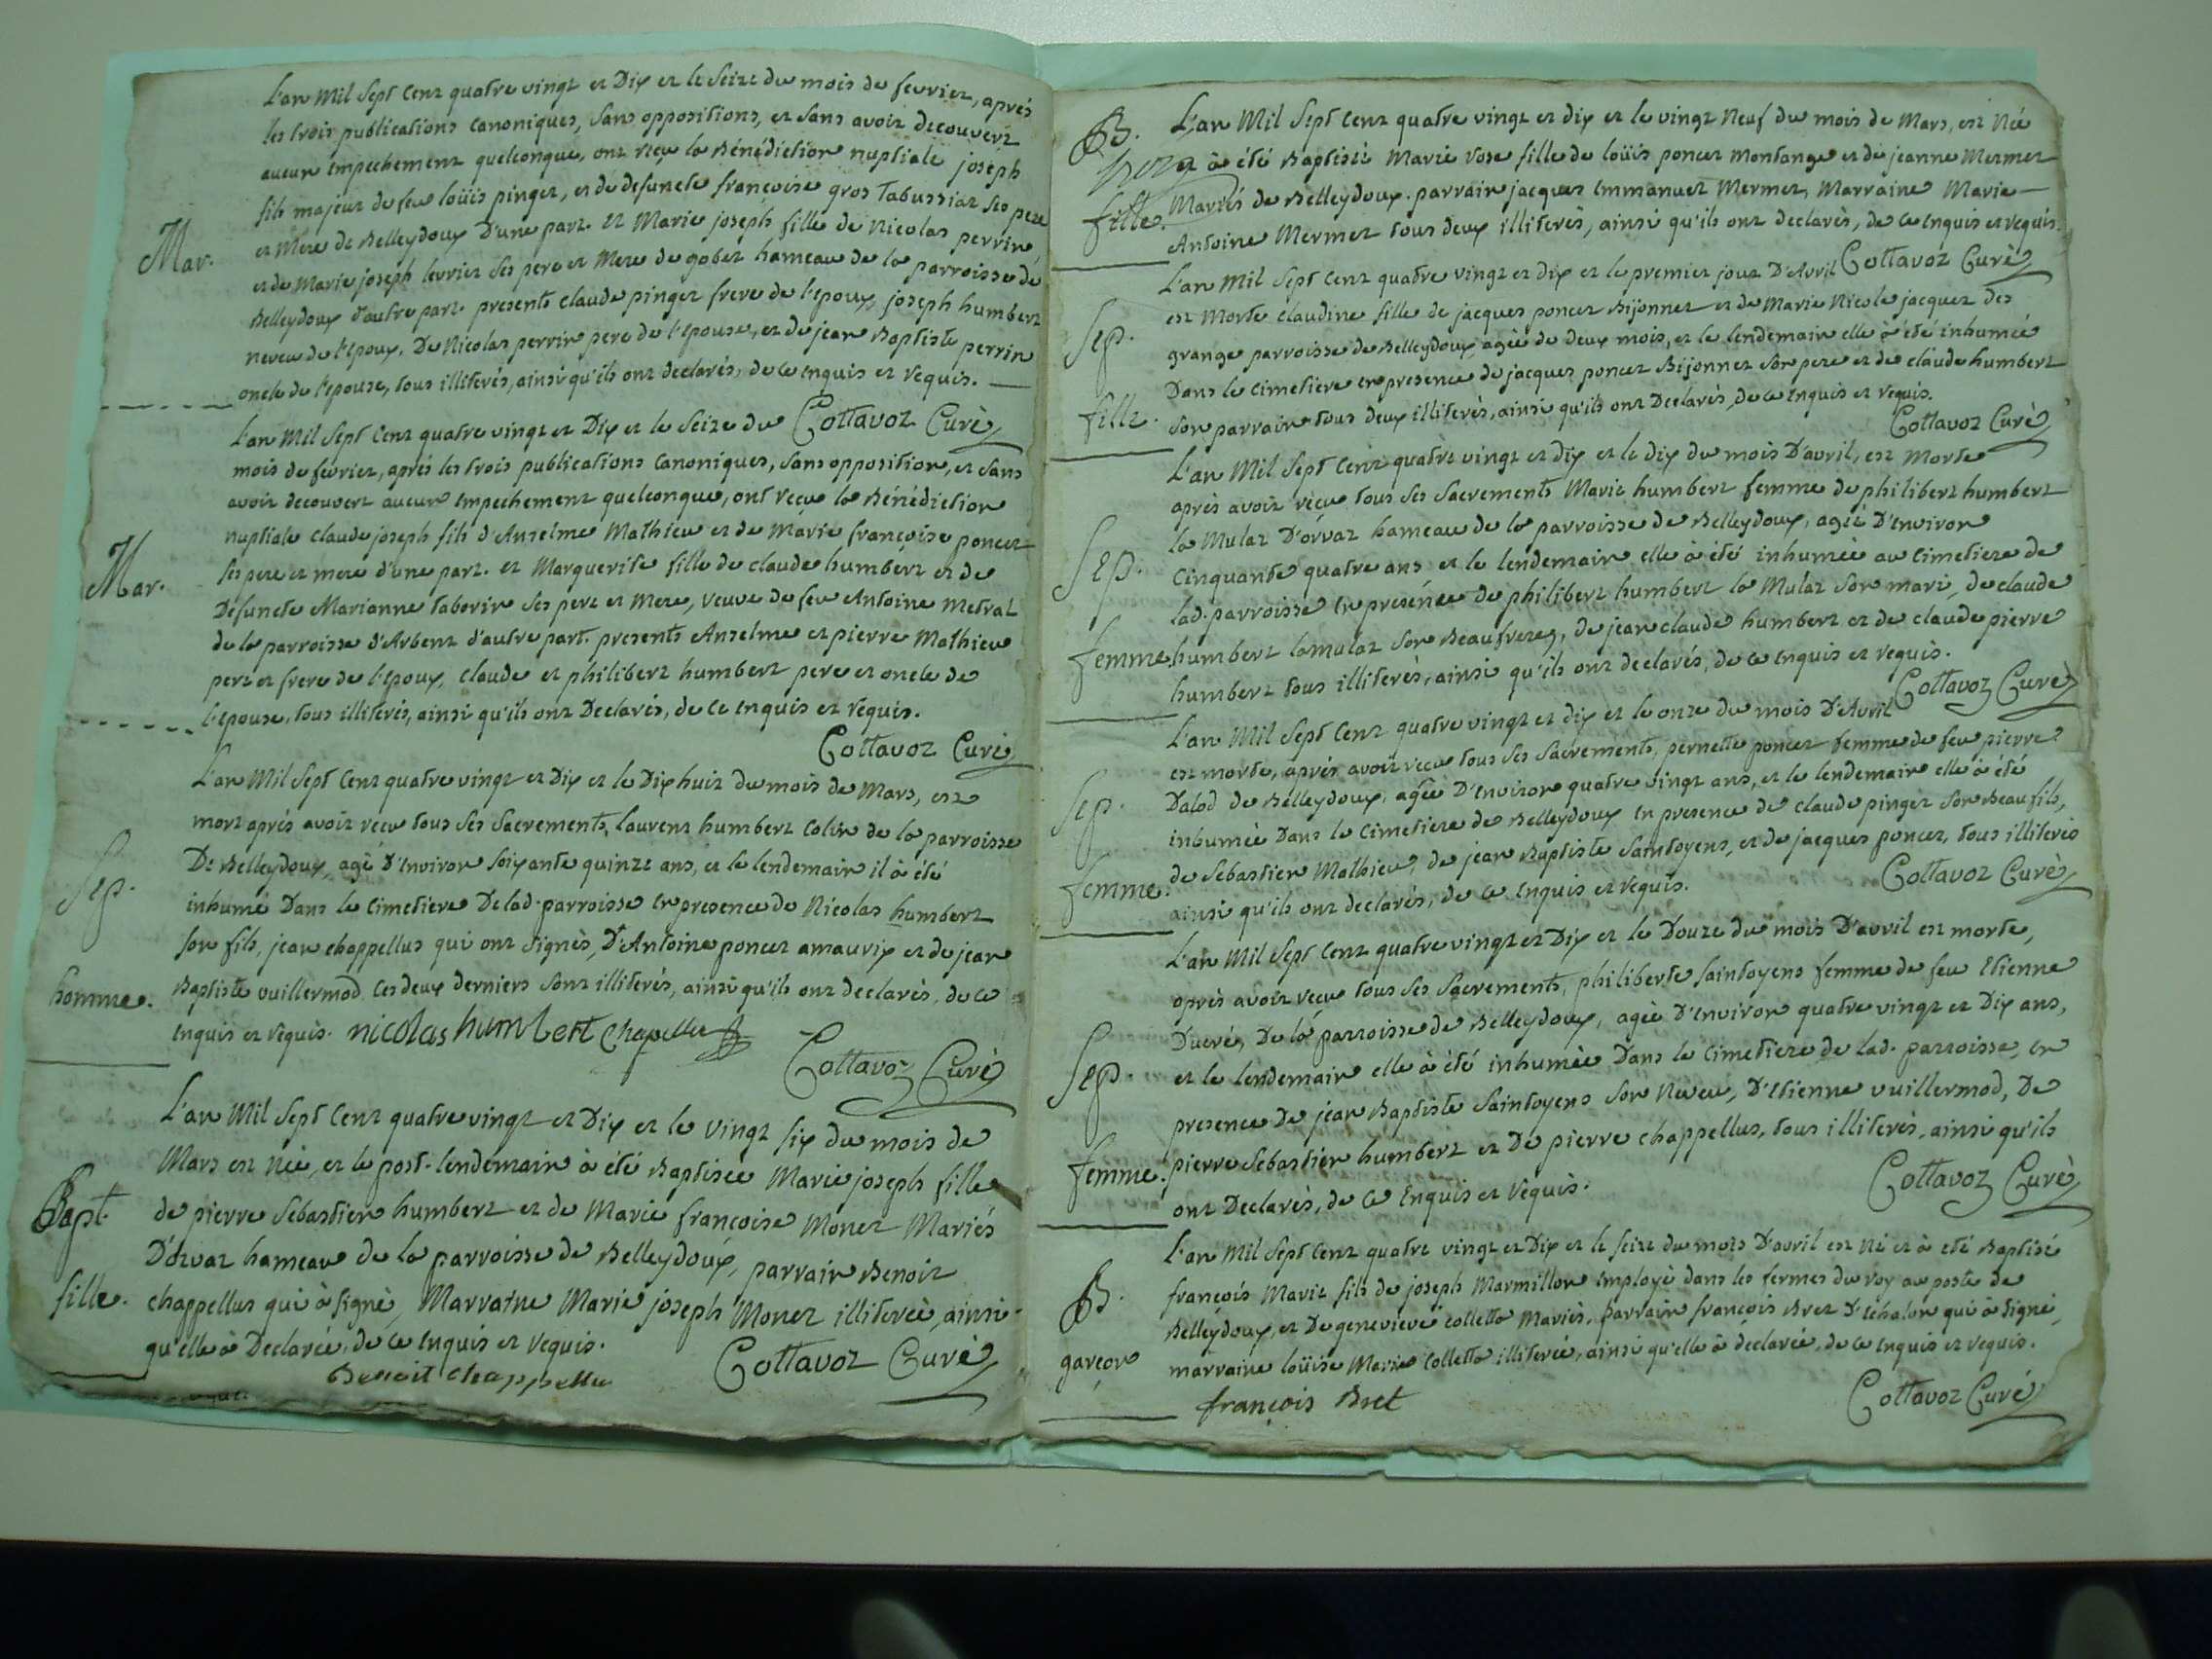 L'an Mil Sept Cent quatre vingt et Dix et le Seize du mois de fevrier, aprés
les trois publications canoniques, Sans oppositions, et sans avoir decouvert
aucun empechement quelconque, ont reçu la Bénédiction nuptiale joseph
fils majeur de feu loüis pinget, et de defuncte françoise gros tabussiat ses pere
Mar. et Mere de Belleydoux D'une part. et Marie joseph fille de Nicolas perrin
et de Marie joseph levrier Ses pere et Mere de gobet hameau de la parroisse de
Belleydoux d'autre part. presents claude pinget frere de l'epoux, joseph humbert
neveu de l'epoux, De Nicolas perrin pere de l'epouse, et de jean Baptiste perrin
oncle de l'epouse, tous illiterés, ainsi qu'ils ont declarés, de ce enquis et requis.
Cottavoz Curé
L'an Mil Sept Cent quatre vingt et Dix et le Seize du
mois de fevrier, aprés les trois publications canoniques, Sans opposition, et Sans
avoir decouvert aucun empechement quelconque, ont reçu la Bénédiction
nuptiale claude joseph fils d'Anselme Mathieu et de Marie françoise poncet
Mar. Ses pere et mere d'une part. et Marguerite fille de claude humbert et de
Defuncte Marianne taborin Ses pere et Mere, veuve de feu Antoine Metral
de la parroisse d'Arbent d'autre part. presents Anselme et pierre Mathieu
pere et frere de l'epoux, claude et philibert humbert pere et oncle de
l'epouse, tous illiterés, ainsi qu'ils ont Declarés, de ce enquis et requis.
Cottavoz Curé
L'an Mil Sept Cent quatre vingt et Dix et le Dix huit du mois de Mars, est
mort aprés avoir recu tous Ses Sacrements, laurent humbert colin de la parroisse
Sep. De Belleydoux, agé D'environ Soixante quinze ans, et le lendemain il à été
inhumé Dans le Cimetiere De lad. parroisse en presence de Nicolas humbert
son fils, jean chappellus qui ont Signés, D'Antoine poncet amaurix et de jean
homme. Baptiste vuillermod, Ces deux derniers sont illiterés, ainsi qu'ils ont declarés, de ce
enquis et requis. nicolas humbert Chapellu
Cottavoz Curé
L'an Mil Sept Cent quatre vingt et Dix et le vingt six du mois de
Mars est née, et le post-lendemain à été Baptisée Marie joseph fille
Bapt. de pierre Sebastien humbert et de Marie françoise Monet Mariés
D'orvaz hameau de la parroisse de Belleydoux, parrain Benoit
fille. chappellus qui à signé, Marraine Marie joseph Monet illiterée, ainsi
qu'elle à Declarée, de ce enquis et requis.
Benoit chappellu
Cottavoz Curé
B. L'an Mil Sept Cent quatre vingt et dix et le vingt Neuf du mois de Mars, est Née
à été Baptisée Marie rose fille de loüis poncet Montange et de jeanne Mermet
fille. Mariés de Belleydoux. parrain jacques emmanuel Mermet, Marraine Marie
Antoine Mermet tous deux illiterés, ainsi qu'ils ont declarés, de ce enquis et requis.
Cottavoz Curé
L'an Mil Sept Cent quatre vingt et dix et le premier jour D'Avril
est Morte claudine fille de jacques poncet Bijonnet et de Marie Nicole jacquet des
Sep. grange parroisse de Belleydoux, agée de deux mois, et le lendemain elle à été inhumée
Dans le Cimetiere en presence de jacques poncet Bijonnet son pere et de claude humbert
fille. son parrain tous deux illiterés, ainsi qu'ils ont Declarés, de ce enquis et requis.
Cottavoz Curé
L'an Mil Sept Cent quatre vingt et dix et le dix du mois D'avril, est Morte
aprés avoir reçu tous Ses Sacrements Marie humbert femme de philibert humbert
la Mulaz D'orvaz hameau de la parroisse de Belleydoux, agée D'environ
Sep. Cinquante quatre ans et le lendemain elle à été inhumée au Cimetiere de
lad. parroisse en presénce de philibert humbert la Mulaz son mari, de claude
femme. humbert lamulaz son Beaufrere, de jean claude humbert et de claude pierre
humbert tous illiterés, ainsi qu'ils ont declarés, de ce enquis et requis.
Cottavoz Curé
L'an Mil Sept Cent quatre vingt et dix et le onze du mois D'Avril
est morte, aprés avoir recu tous Ses Sacrements, pernette poncet femme de feu pierre
Sep. Dalod de Belleydoux, agée D'environ quatre vingt ans, et le lendemain elle à été
inhumée Dans le Cimetiere de Belleydoux en presence de claude pinget son Beau fils,
femme. de Sebastien Mathieu, de jean Baptiste Saintoyens, et de jacques poncet, tous illiterés
ainsi qu'ils ont declarés, de ce enquis et requis.
Cottavoz Curé
L'an Mil Sept Cent quatre vingt et Dix et le Douze du mois D'avril est morte,
aprés avoir reçu tous Ses Sacrements, philiberte Saintoyens femme de feu Etienne
Ducré, De la parroisse de Belleydoux, agée D'environ quatre vingt et Dix ans,
Sep. et le lendemain elle à été inhumée Dans le Cimetiere de lad. parroisse, en
presence De jean Baptiste Saintoyens son Neveu, D'etienne vuillermod, De
femme. pierre Sebastien humbert et De pierre chappellus, tous illiterés, ainsi qu'ils
ont Declarés, de ce Enquis et requis.
Cottavoz Curé
L'an Mil Sept Cent quatre vingt et Dix et le Seize du mois D'avril est né et à été Baptisé
B. françois Marie fils de joseph Marmillon employé dans les fermes du roy au poste de
Belleydoux, et De genevieve colletta Mariés, parrain françois Bret D'echalon qui à signé,
garçon marraine loüise Marie Colletta illiterée, ainsi qu'elle à declarée, de ce enquis et requis.
françois Bret
Cottavoz Curé